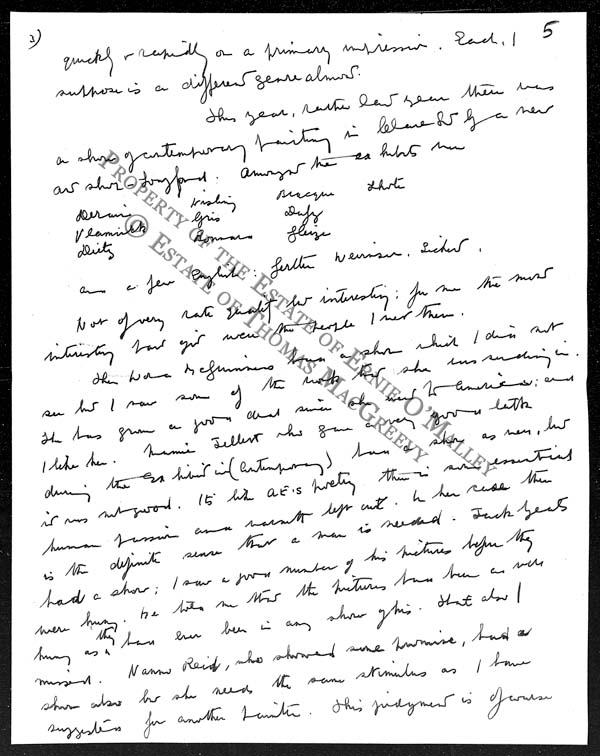 3)
5
quickly & rapidly on a primary impression. Each, I
suppose is a different genre almost.
This year, rather last year there was
a show of contemporary painting in Clare St by a new
art shop Longford. Amongst the exhibits were
Derain Kisling Braque Lhote
Vlaminck Gris Dufy
Dietz
and a few English. Gertler Sickert.
Not of very rare quality but interesting: for me the most
interesting part were the people I met there.
Then Norah McGuinness had a show which I did not
see but I saw some of the work that she was sending in.
She has grown a good deal since she went to America; and
I like her. Mainie Jellett who gave a very good talk
during the exhibition (Contemporary) had a show as well, but
it was not good. It's like AE's poetry there is some essential
human passion and warmth left out. In her case there
is the definite sense that a man is needed. Jack Yeats
had a show; I saw a good number of his pictures before they
were hung. He told me that the pictures had been as well
hung as they had ever been in any show of his. That also I
missed. Nano Reid, who showed some promise, had a
show also but she needs the same stimulus as I have
suggested for another painter. This judgment is of course
PROPERTY OF THE ESTATE OF ERNIE O'MALLEY
© ESTATE OF THOMAS MACGREEVY